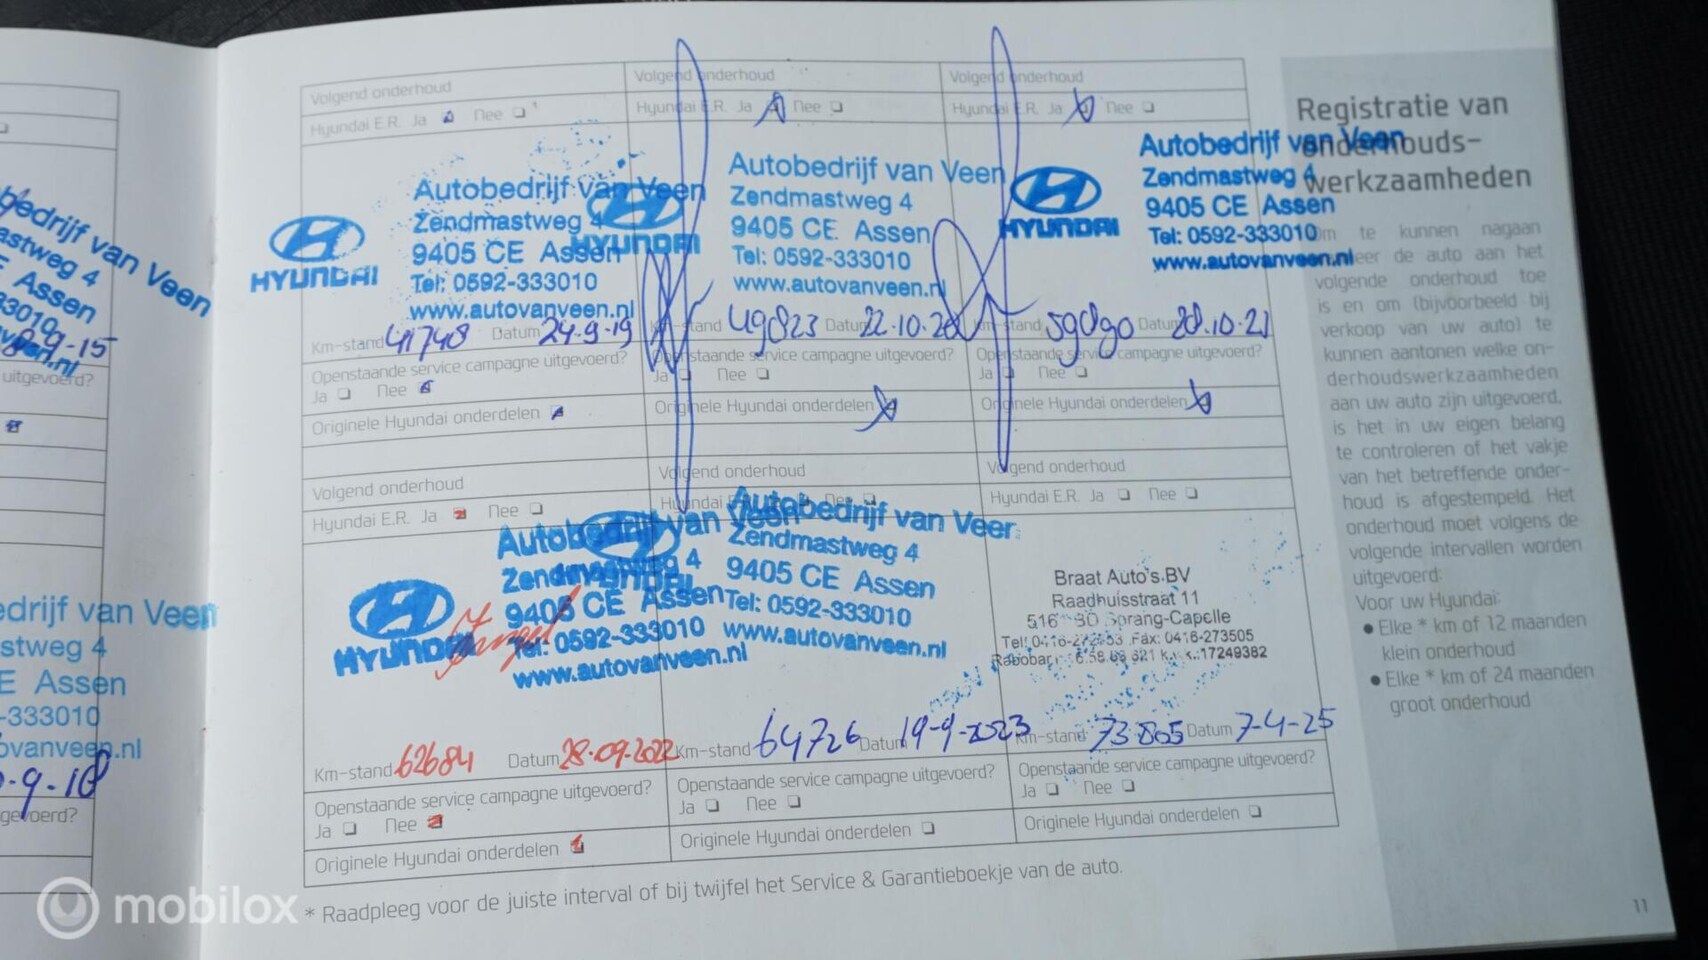 Volgend onderhoud
Hyundai E.R. Ja Nee
HYUNDAI
Autobedrijf van Veen
Zendmastweg 4
9405 CE Assen
Tel: 0592-333010
www.autovanveen.nl
Km-stand 41748 Datum 24-9-19
Openstaande service campagne uitgevoerd?
Ja Nee
Originele Hyundai onderdelen
Volgend onderhoud
Hyundai E.R. Ja Nee
HYUNDAI
Autobedrijf van Veen
Zendmastweg 4
9405 CE Assen
Tel: 0592-333010
www.autovanveen.nl
Km-stand Datum 22.10.20
Openstaande service campagne uitgevoerd?
Ja Nee
Originele Hyundai onderdelen
Volgend onderhoud
Hyundai E.R. Ja Nee
HYUNDAI
Autobedrijf van Veen
Zendmastweg 4
9405 CE Assen
Tel: 0592-333010
www.autovanveen.nl
Km-stand Datum
Openstaande service campagne uitgevoerd?
Ja Nee
Originele Hyundai onderdelen
Volgend onderhoud
Hyundai E.R. Ja Nee
HYUNDAI
Autobedrijf van Veen
Zendmastweg 4
9405 CE Assen
Tel: 0592-333010
www.autovanveen.nl
Km-stand 62684 Datum 28-09-2022
Openstaande service campagne uitgevoerd?
Ja Nee
Originele Hyundai onderdelen
Volgend onderhoud
Hyundai
Autobedrijf van Veen
Zendmastweg 4
9405 CE Assen
Tel: 0592-333010
www.autovanveen.nl
Km-stand 64726 Datum 19-9-2023
Openstaande service campagne uitgevoerd?
Ja Nee
Originele Hyundai onderdelen
Volgend onderhoud
Hyundai E.R. Ja Nee
Braat Auto's BV
Raadhuisstraat 11
Sprang-Capelle
Fax: 0416-273505
17249382
Km-stand 73805 Datum 7-4-25
Openstaande service campagne uitgevoerd?
Ja Nee
Originele Hyundai onderdelen
* Raadpleeg voor de juiste interval of bij twijfel het Service & Garantieboekje van de auto.
Registratie van
onderhouds-
werkzaamheden
Om te kunnen nagaan
wanneer de auto aan het
volgende onderhoud toe
is en om (bijvoorbeeld bij
verkoop van uw auto) te
kunnen aantonen welke on-
derhoudswerkzaamheden
aan uw auto zijn uitgevoerd,
is het in uw eigen belang
te controleren of het vakje
van het betreffende onder-
houd is afgestempeld. Het
onderhoud moet volgens de
volgende intervallen worden
uitgevoerd:
Voor uw Hyundai:
• Elke * km of 12 maanden
klein onderhoud
• Elke * km of 24 maanden
groot onderhoud
11
mobilox